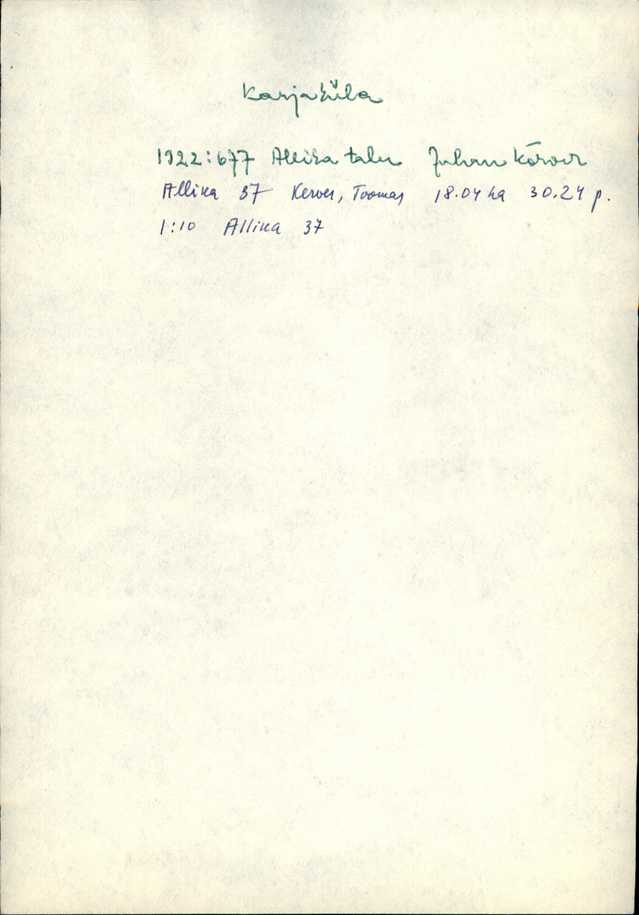 Karjaküla
1922:677 Allika talu Juhan Körver
Allika 37 Kerver, Toomas 18.04 ha 30.24 p.
1:10 Allika 37